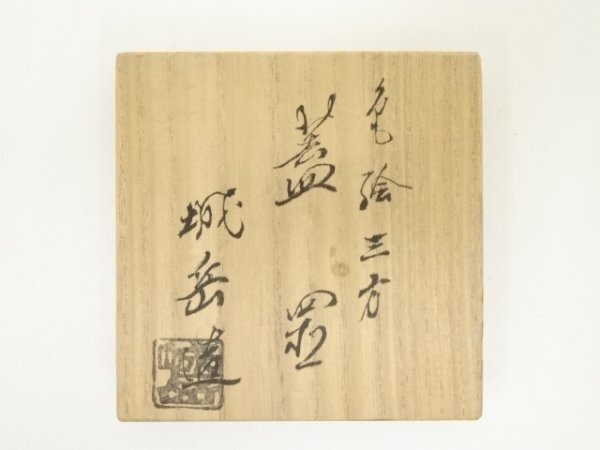 色絵三方
蓋置
城岳造